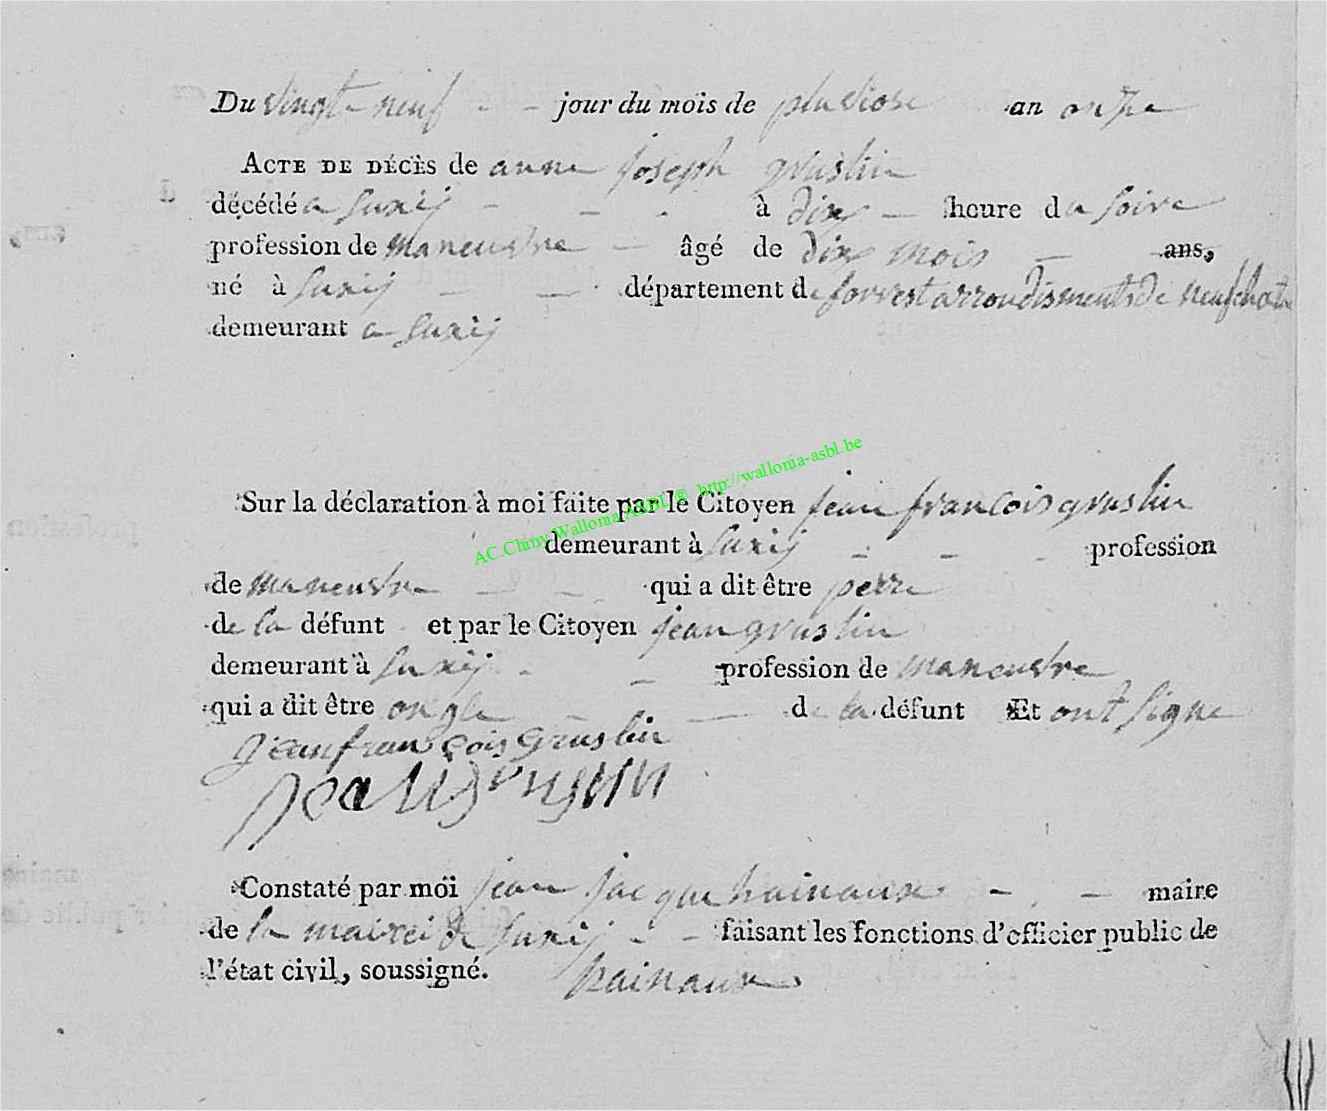 Du vingte neuf - - jour du mois de pluviose an onze
ACTE DE DÉCÈS de anne joseph gruslin
décédé a Suxÿ - - - à dix - heure du soire
profession de maneuvre - âgé de dix mois - ans,
né à Suxÿ - - département de forrest arrondisments de neufchate
demeurant a Suxÿ
AC.Chiny Wallonia ASBL @ http://wallonia-asbl.be
Sur la déclaration à moi faite par le Citoyen jean francois gruslin
demeurant à Suxÿ - - - profession
de maneuvre - - qui a dit être perre
de la défunt et par le Citoyen jean gruslin
demeurant à Suxÿ - - profession de maneuvre
qui a dit être ongle - - de la défunt Et ont signe
jean françois Gruslin
jean gruslin
Constaté par moi jean jacque hainaux - - maire
de la mairei de Suxÿ - - faisant les fonctions d'officier public de
l'état civil, soussigné. hainaux